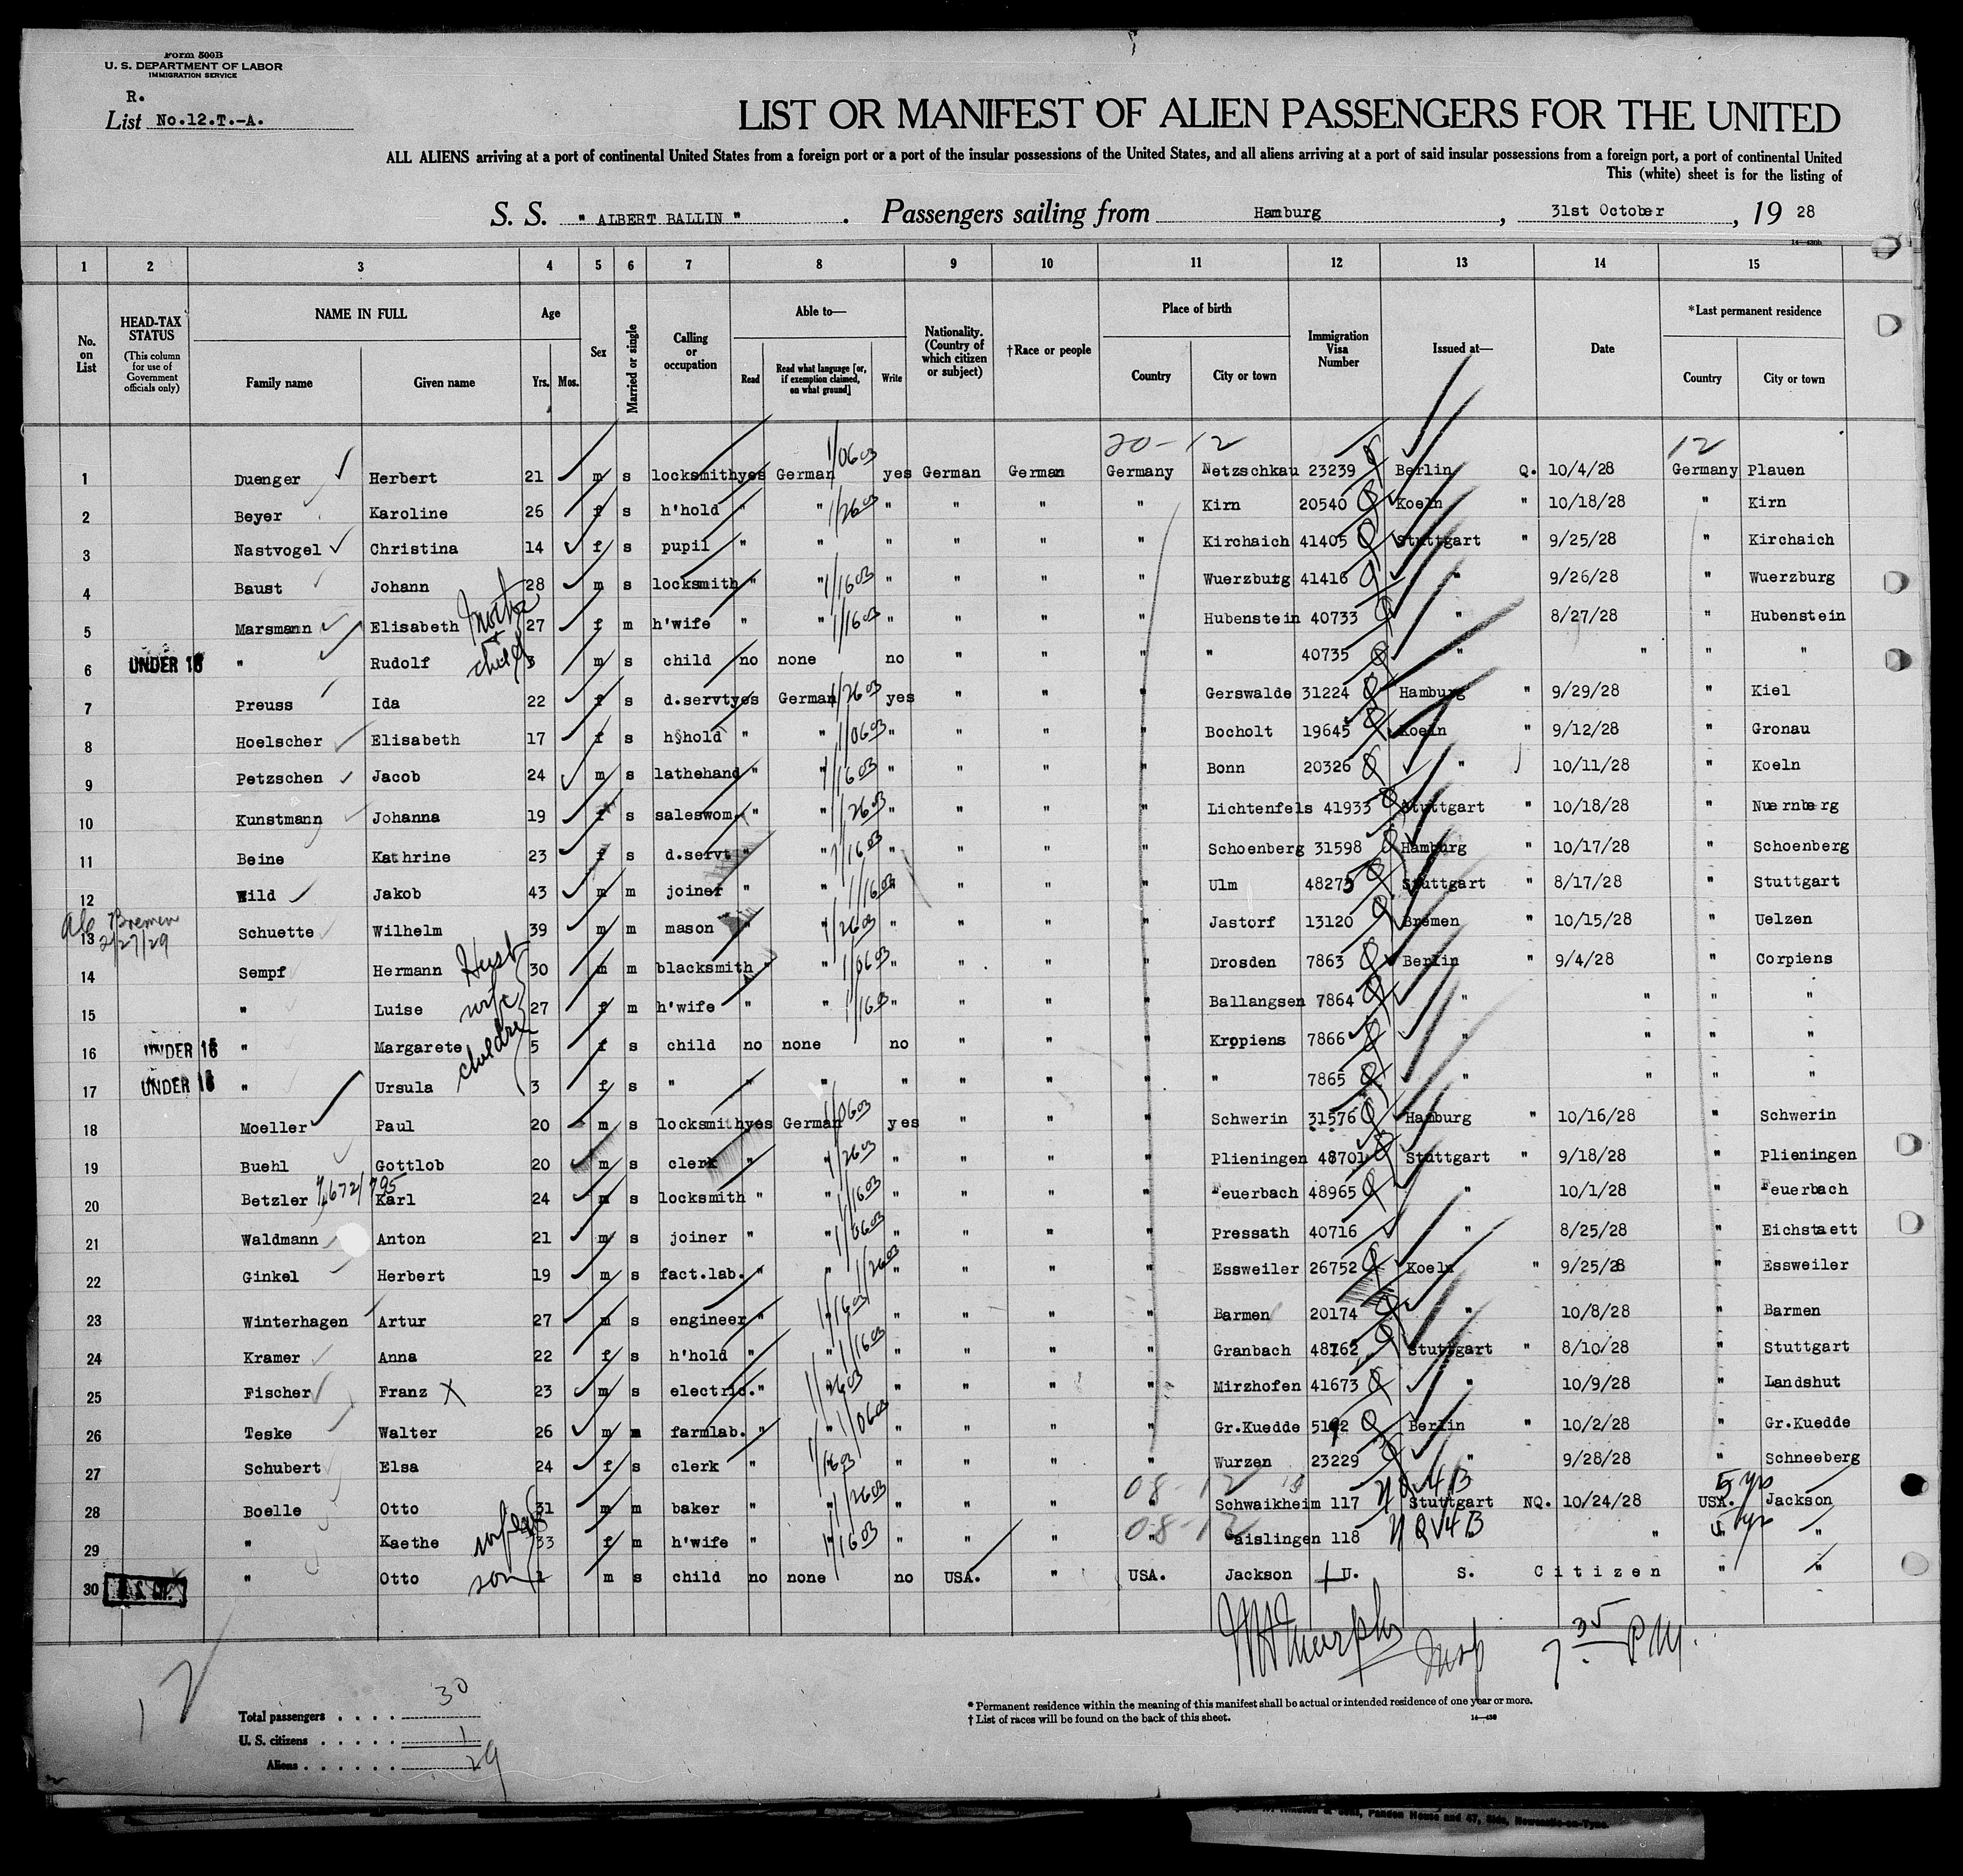 Form 500B
U. S. DEPARTMENT OF LABOR
IMMIGRATION SERVICE
R.
List No.12.T.-A.
LIST OR MANIFEST OF ALIEN PASSENGERS FOR THE UNITED
ALL ALIENS arriving at a port of continental United States from a foreign port or a port of the insular possessions of the United States, and all aliens arriving at a port of said insular possessions from a foreign port, a port of continental United
This (white) sheet is for the listing of
S. S. " ALBERT BALLIN " . Passengers sailing from Hamburg , 31st October , 19 28
14—430b
1 2 3 4 5 6 7 8 9 10 11 12 13 14 15
No. on List
HEAD-TAX STATUS (This column for use of Government officials only)
NAME IN FULL
Family name Given name
Age
Yrs. Mos.
Sex
Married or single
Calling or occupation
Able to—
Read Read what language [or, if exemption claimed, on what ground] Write
Nationality. (Country of which citizen or subject)
†Race or people
Place of birth
Country City or town
Immigration Visa Number
Issued at—
Date
*Last permanent residence
Country City or town
20-12 12
1 Duenger Herbert 21 m s locksmith yes German 1/06 03 yes German German Germany Netzschkau 23239 Berlin Q. 10/4/28 Germany Plauen
2 Beyer Karoline 26 f s h'hold " " 1/26 03 " " " " Kirn 20540 Koeln " 10/18/28 " Kirn
3 Nastvogel Christina 14 f s pupil " " " " " " Kirchaich 41405 Stuttgart " 9/25/28 " Kirchaich
4 Baust Johann 28 m s locksmith " " 1/16 03 " " " " Wuerzburg 41416 " 9/26/28 " Wuerzburg
5 Marsmann Elisabeth 27 f m h'wife " " 1/16 03 " " " " Hubenstein 40733 " 8/27/28 " Hubenstein
child
6 UNDER 16 " Rudolf 3 m s child no none no " " " " 40735 " " " "
7 Preuss Ida 22 f s d.servt yes German 1/26 03 yes " " " Gerswalde 31224 Hamburg " 9/29/28 " Kiel
8 Hoelscher Elisabeth 17 f s h§hold " " 1/06 03 " " " " Bocholt 19645 Koeln " 9/12/28 " Gronau
9 Petzschen Jacob 24 m s lathehand " " 1/16 03 " " " " Bonn 20326 " 10/11/28 " Koeln
10 Kunstmann Johanna 19 f s saleswom. " " 1/26 03 " " " " Lichtenfels 41933 Stuttgart " 10/18/28 " Nuernberg
11 Beine Kathrine 23 f s d.servt " " 1/16 03 " " " " Schoenberg 31598 Hamburg " 10/17/28 " Schoenberg
12 Wild Jakob 43 m m joiner " " 1/16 03 " " " " Ulm 48275 Stuttgart " 8/17/28 " Stuttgart
Bremen
2/27/29
13 Schuette Wilhelm 39 m m mason " " 1/26 03 " " " " Jastorf 13120 Bremen " 10/15/28 " Uelzen
Husb
14 Sempf Hermann 30 m m blacksmith " " 1/06 03 " " " " Drosden 7863 Berlin " 9/4/28 " Corpiens
wife
15 " Luise 27 f m h'wife " " 1/16 03 " " " " Ballangsen 7864 " " " "
children
16 UNDER 16 " Margarete 5 f s child no none no " " " Krppiens 7866 " " " "
17 UNDER 16 " Ursula 3 f s " " " " " " " " 7865 " " " "
18 Moeller Paul 20 m s locksmith yes German 1/06 03 yes " " " Schwerin 31576 Hamburg " 10/16/28 " Schwerin
19 Buehl Gottlob 20 m s clerk " " 1/26 03 " " " " Plieningen 48701 Stuttgart " 9/18/28 " Plieningen
20 Betzler Karl 24 m s locksmith " " 1/16 03 " " " " Feuerbach 48965 " 10/1/28 " Feuerbach
21 Waldmann Anton 21 m s joiner " " 1/06 03 " " " " Pressath 40716 " 8/25/28 " Eichstaett
22 Ginkel Herbert 19 m s fact.lab. " " 1/26 03 " " " " Essweiler 26752 Koeln " 9/25/28 " Essweiler
23 Winterhagen Artur 27 m s engineer " " 1/16 03 " " " " Barmen 20174 " 10/8/28 " Barmen
24 Kramer Anna 22 f s h'hold " " 1/16 03 " " " " Granbach 48762 Stuttgart " 8/10/28 " Stuttgart
25 Fischer Franz X 23 m s electric. " 1/26 03 " " " " Mirzhofen 41673 " 10/9/28 " Landshut
26 Teske Walter 26 m m farmlab. " " 1/06 03 " " " " Gr.Kuedde Berlin " 10/2/28 " Gr.Kuedde
27 Schubert Elsa 24 f s clerk " 1/16 03 " " " " Wurzen 23229 " 9/28/28 " Schneeberg
08-12 NQ 4B 5 yrs
28 Boelle Otto 31 m m baker " " 1/26 03 " " " " Schwaikheim 117 Stuttgart NQ. 10/24/28 USA. Jackson
wife 08-12 5 yrs
29 " Kaethe 33 f m h'wife " " 1/16 03 " " " " Gaislingen 118 " " " "
son
30 " Otto 1 m s child no none no USA. " USA. Jackson U. S. Citizen " "
Murphy Insp 7 35 P M.
12
Total passengers . . . . 30
U. S. citizens . . . . . 1
Aliens . . . . . . 29
* Permanent residence within the meaning of this manifest shall be actual or intended residence of one year or more.
† List of races will be found on the back of this sheet.
14—430
Pandon House and 47, Side, Newcastle-on-Tyne.